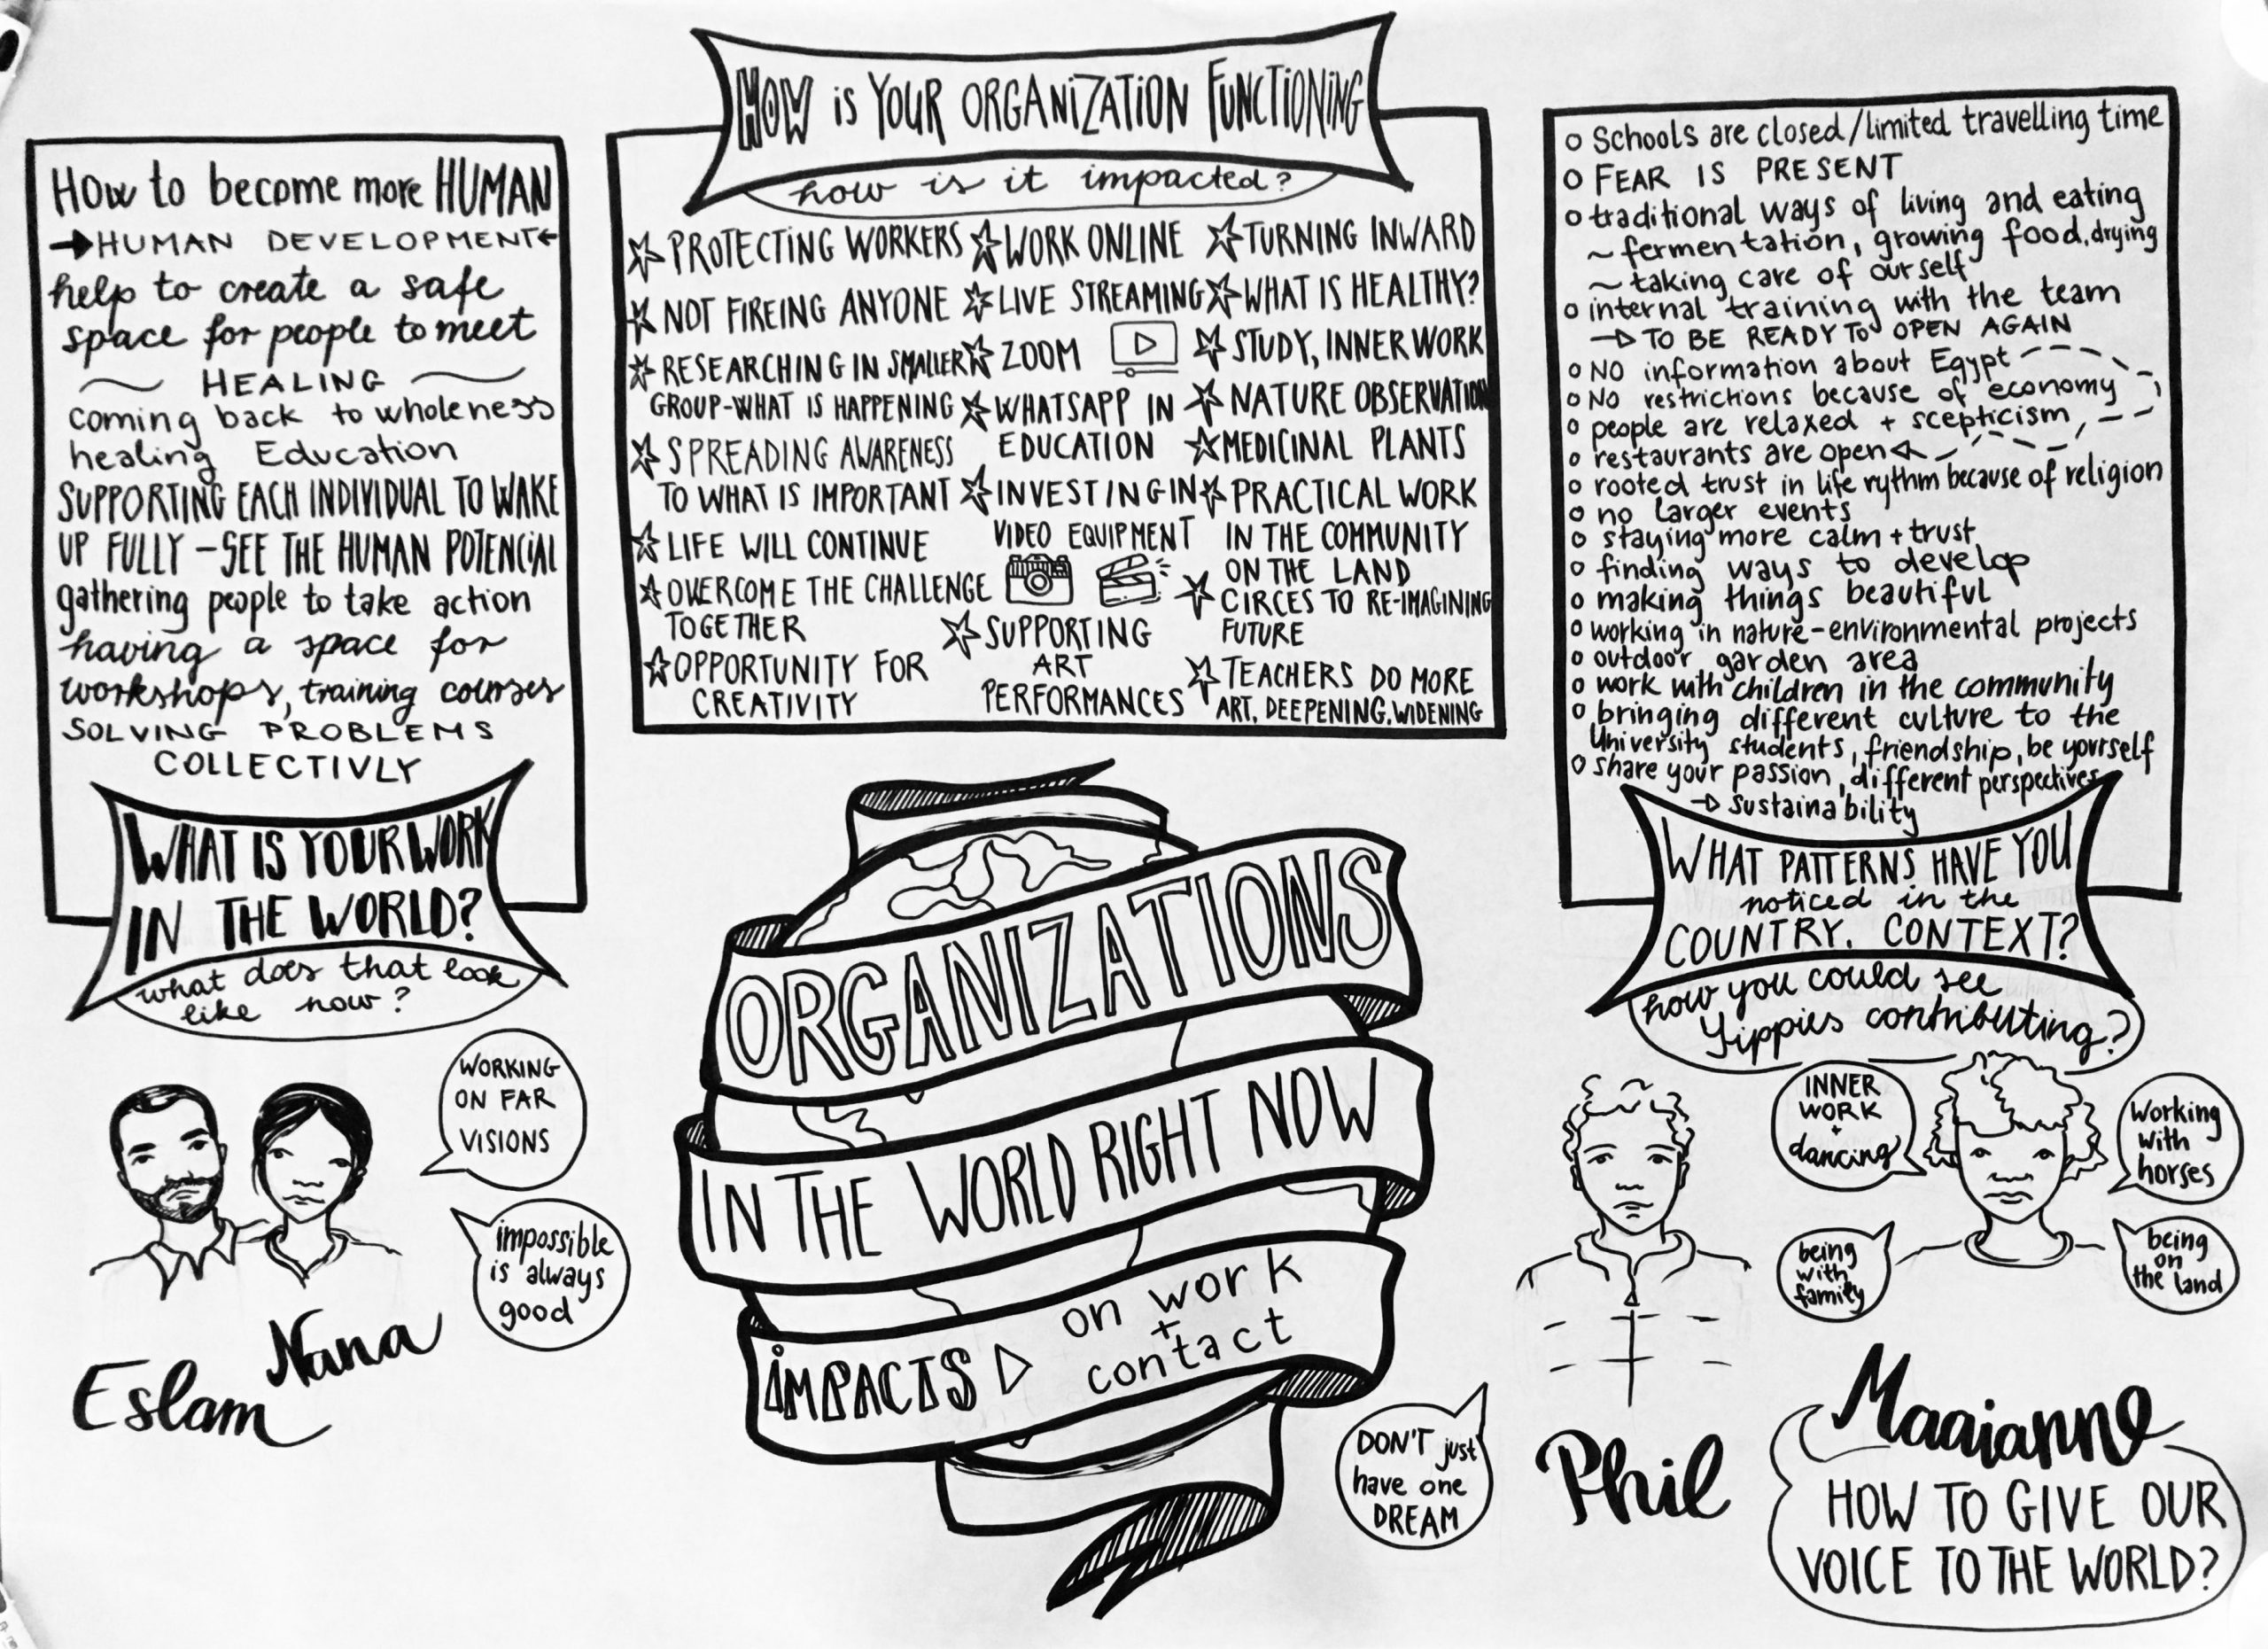 How to become more HUMAN
HUMAN DEVELOPMENT
help to create a safe
space for people to meet
~ HEALING ~
coming back to wholeness
healing Education
SUPPORTING EACH INDIVIDUAL TO WAKE
UP FULLY - SEE THE HUMAN POTENCIAL
gathering people to take action
having a space for
workshops, training courses
SOLVING PROBLEMS
COLLECTIVLY
WHAT IS YOUR WORK
IN THE WORLD?
what does that look
like now?
WORKING
ON FAR
VISIONS
impossible
is always
good
Eslam
Nana
HOW is YOUR ORGANiZATiON FUNCTiONiNG
how is it impacted?
PROTECTING WORKERS
NOT FIREING ANYONE
RESEARCHING IN SMALLER
GROUP-WHAT IS HAPPENING
SPREADING AWARENESS
TO WHAT IS IMPORTANT
LIFE WILL CONTINUE
OVERCOME THE CHALLENGE
TOGETHER
OPPORTUNITY FOR
CREATIVITY
WORK ONLINE
LIVE STREAMING
ZOOM
WHATSAPP IN
EDUCATION
INVESTING IN
VIDEO EQUIPMENT
SUPPORTING
ART
PERFORMANCES
TURNING INWARD
WHAT IS HEALTHY?
STUDY, INNER WORK
NATURE OBSERVATION
MEDICINAL PLANTS
PRACTICAL WORK
IN THE COMMUNITY
ON THE LAND
CIRCES TO RE-IMAGINING
FUTURE
TEACHERS DO MORE
ART, DEEPENING, WIDENING
ORGANIZATIONS
IN THE WORLD RIGHT NOW
iMPACTS
on work
+
contact
o Schools are closed/limited travelling time
o FEAR IS PRESENT
o traditional ways of living and eating
~ fermentation, growing food, drying
~ taking care of ourself
o internal training with the team
TO BE READY TO OPEN AGAIN
o NO information about Egypt
o No restrictions because of economy
o people are relaxed + scepticism
o restaurants are open
o rooted trust in life rythm because of religion
o no larger events
o staying more calm + trust
o finding ways to develop
o making things beautiful
o working in nature-environmental projects
o outdoor garden area
o work with children in the community
o bringing different culture to the
University students, friendship, be yourself
o share your passion, different perspectives
sustainability
WHAT PATTERNS HAVE YOU
noticed in the
COUNTRY. CONTEXT?
how you could see
Yippies contributing?
INNER
WORK
+
dancing
Working
with
horses
being
with
family
being
on
the land
DON'T just
have one
DREAM
Phil
Maaianne
HOW TO GIVE OUR
VOICE TO THE WORLD?